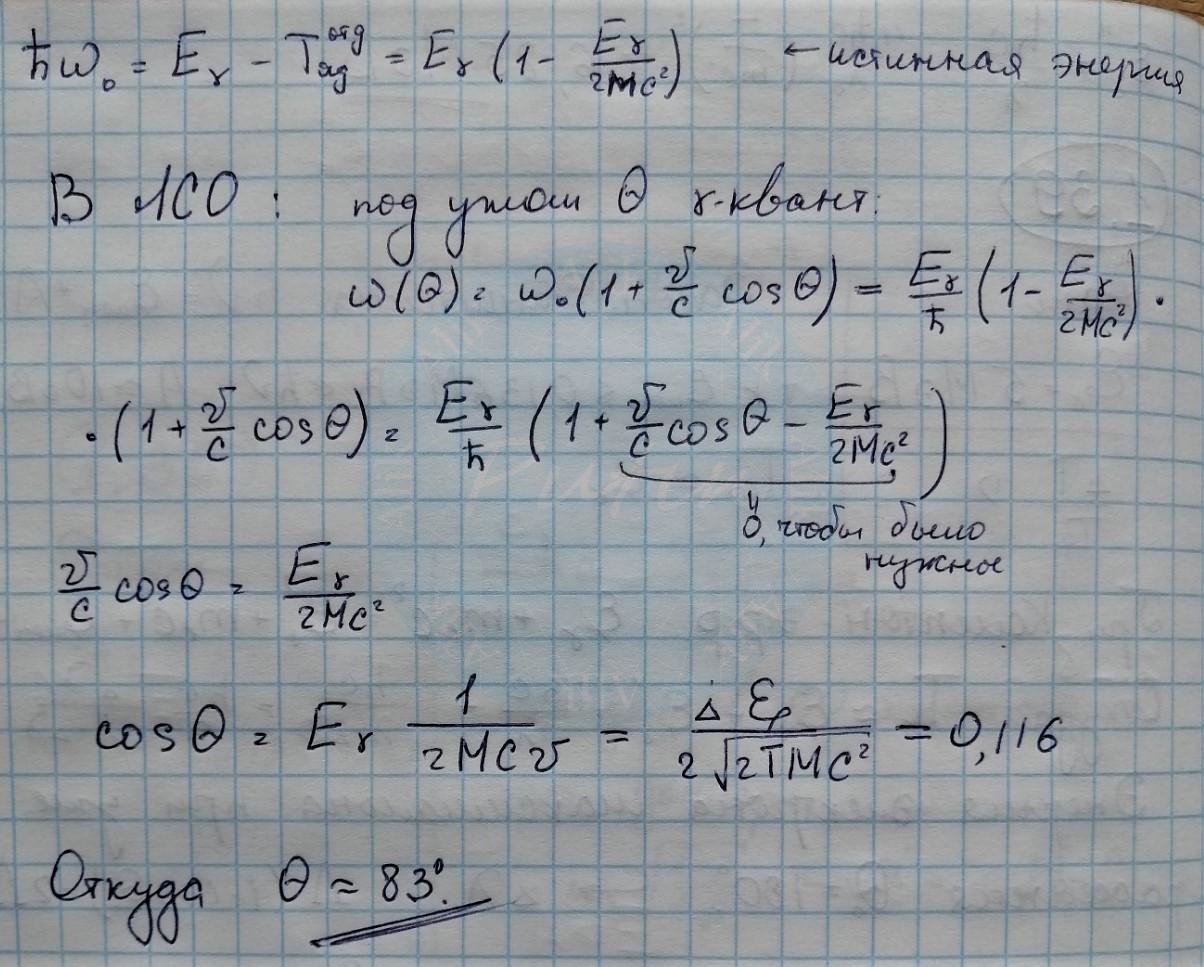 ħω₀ = E_γ − T_яд^отд = E_γ (1 − E_γ/2Mc²) ← истинная энергия
В ЛСО: под углом Θ γ-квант:
ω(Θ) = ω₀(1 + v/c cosΘ) = E_γ/ħ (1 − E_γ/2Mc²) ·
· (1 + v/c cosΘ) = E_γ/ħ (1 + v/c cosΘ − E_γ/2Mc²)
0, чтобы было
нужное
v/c cosΘ = E_γ/2Mc²
cosΘ = E_γ 1/2Mcv = Δ ℰ_γ/2√2TMc² = 0,116
Откуда Θ ≈ 83°.